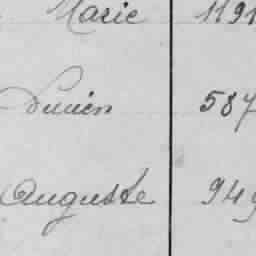 Marie 1191
Lucien 587
Auguste 949